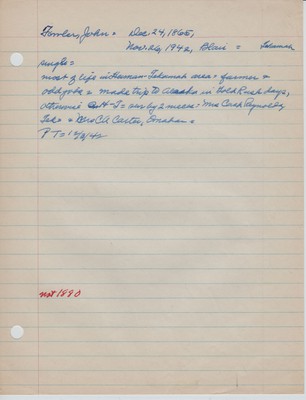 Fowler, John = Dec. 24, 1865,
Nov. 26, 1942, Blair = Tekamah
single =
most of life in Herman-Tekamah area = farmer &
odd jobs = made trip to Alaska in Gold Rush days,
otherwise B-H-T = sur by 2 nieces = Mrs Cash Reynolds
Tek = & Mrs C A Carter, Omaha =
P T = 12/3/42
not 1880